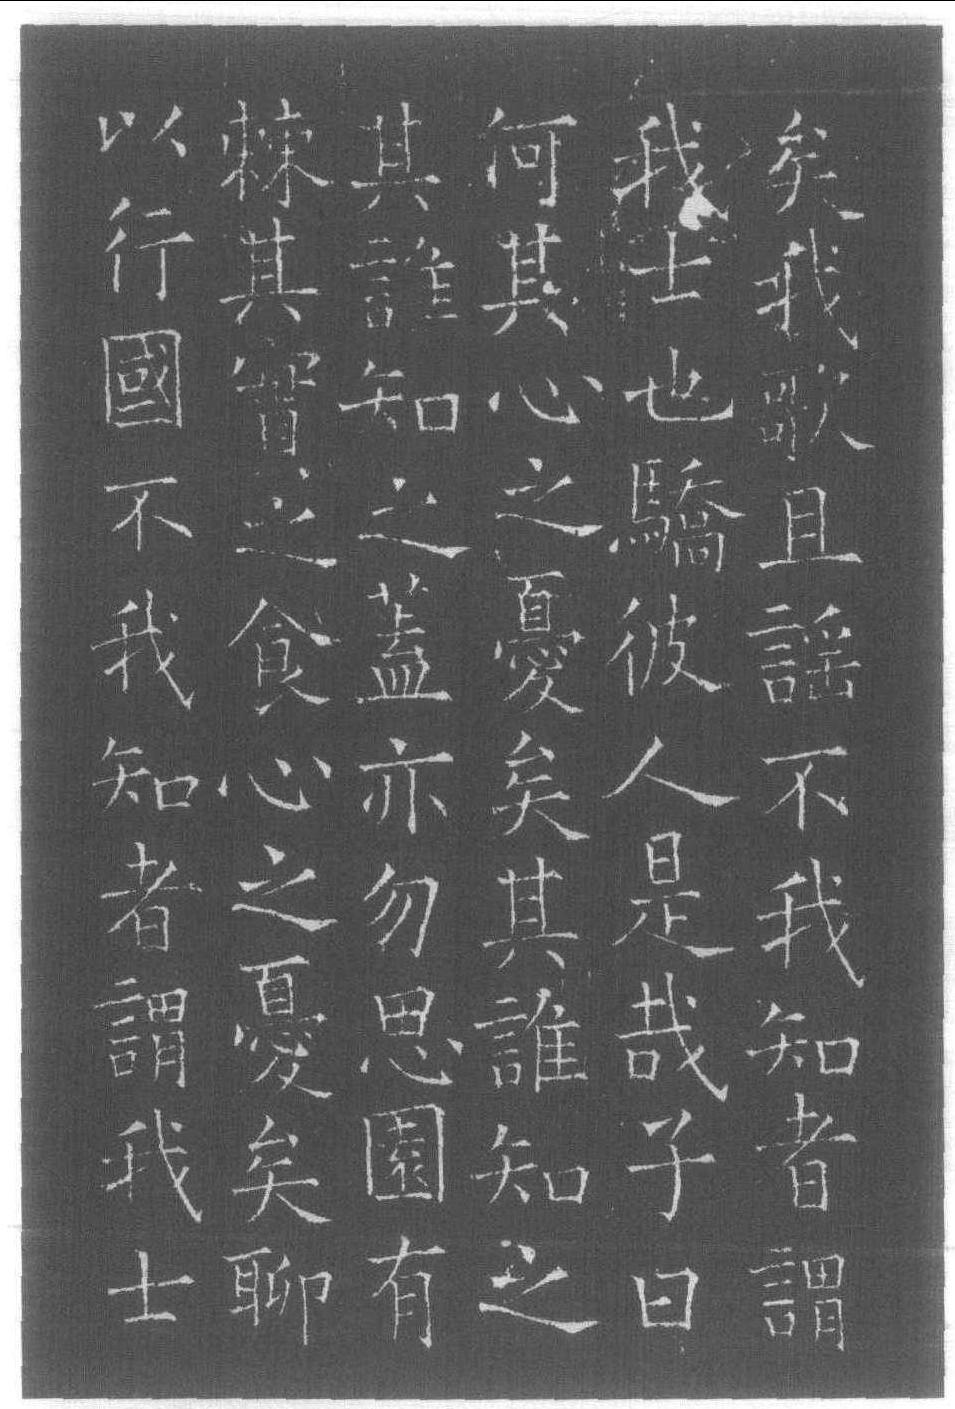 矣我歌且謡不我知者謂
我士也驕彼人是哉子曰
何其心之憂矣其誰知之
其誰知之蓋亦勿思園有
棘其實之食心之憂矣聊
以行國不我知者謂我士